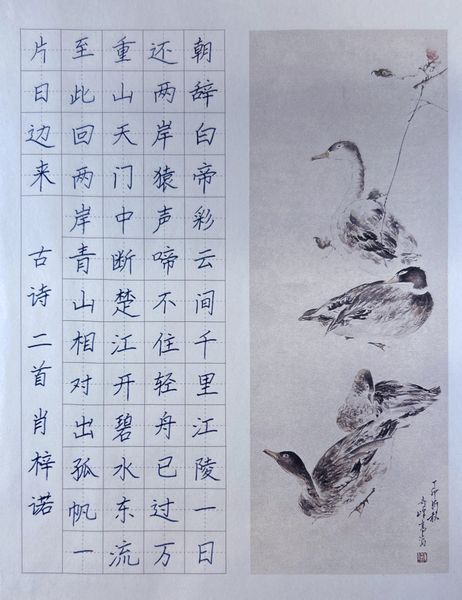 朝辞白帝彩云间千里江陵一日
还两岸猿声啼不住轻舟已过万
重山天门中断楚江开碧水东流
至此回两岸青山相对出孤帆一
片日边来 古诗二首 肖梓诺